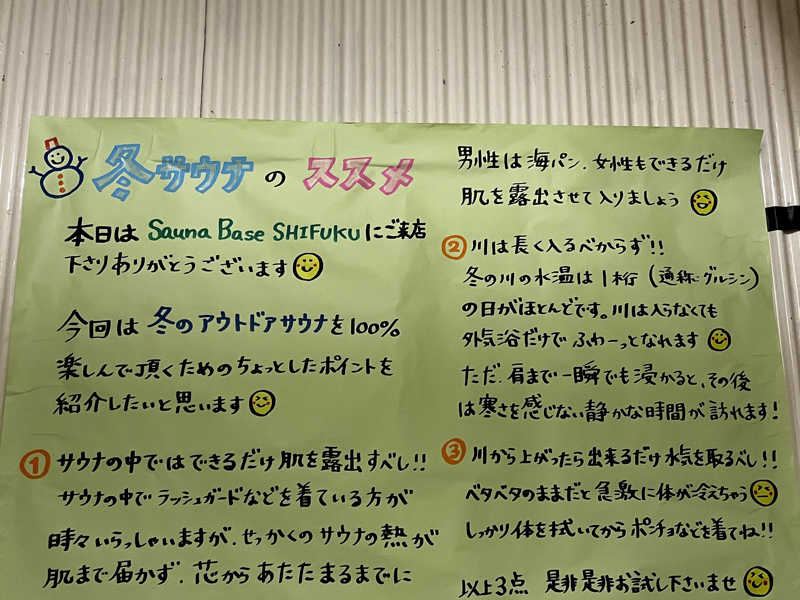 冬サウナのススメ
本日は Sauna Base SHIFUKUにご来店
下さりありがとうございます
今回は 冬のアウトドアサウナを100%
楽しんで頂くためのちょっとしたポイントを
紹介したいと思います
① サウナの中ではできるだけ肌を露出すべし!!
サウナの中でラッシュガードなどを着ている方が
時々いらっしゃいますが、せっかくのサウナの熱が
肌まで届かず、芯からあたたまるまでに
男性は海パン、女性もできるだけ
肌を露出させて入りましょう
② 川は長く入るべからず!!
冬の川の水温は1桁(通称:グルシン)
の日がほとんどです。川は入らなくても
外気浴だけでふわーっとなれます
ただ、肩まで一瞬でも浸かると、その後
は寒さを感じない静かな時間が訪れます!
③ 川から上がったら出来るだけ水気を取るべし!!
ベタベタのままだと急激に体が冷えちゃう
しっかり体を拭いてからポンチョなどを着てね!!
以上3点 是非是非お試し下さいませ